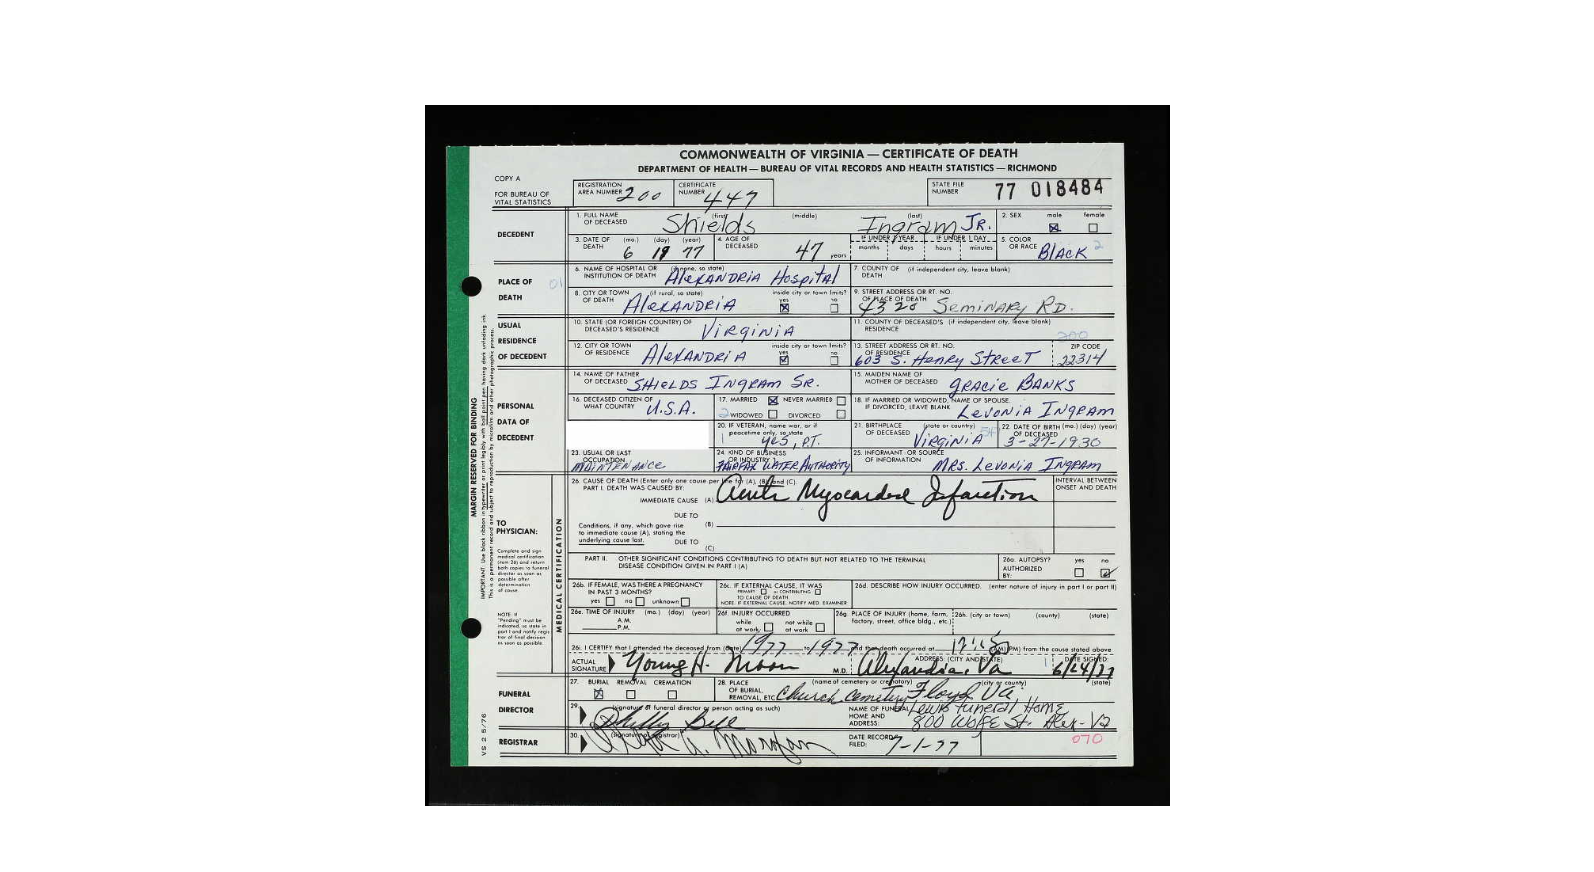 COMMONWEALTH OF VIRGINIA — CERTIFICATE OF DEATH
DEPARTMENT OF HEALTH — BUREAU OF VITAL RECORDS AND HEALTH STATISTICS — RICHMOND
COPY A
FOR BUREAU OF VITAL STATISTICS
REGISTRATION AREA NUMBER 200 CERTIFICATE NUMBER 447 STATE FILE NUMBER 77 018484
DECEDENT
1. FULL NAME OF DECEASED (first) Shields (middle) (last) Ingram JR. 2. SEX male ☒ female ☐
3. DATE OF DEATH (mo.) (day) (year) 6 19 77 4. AGE OF DECEASED 47 years IF UNDER 1 YEAR months days IF UNDER 1 DAY hours minutes 5. COLOR OR RACE Black 2
PLACE OF DEATH
01
6. NAME OF HOSPITAL OR INSTITUTION OF DEATH (if none, so state) Alexandria Hospital 7. COUNTY OF DEATH (if independent city, leave blank)
8. CITY OR TOWN OF DEATH (if rural, so state) Alexandria inside city or town limits? yes ☒ no ☐ 9. STREET ADDRESS OR RT. NO. OF PLACE OF DEATH 4320 Seminary RD.
USUAL RESIDENCE OF DECEDENT
10. STATE (OR FOREIGN COUNTRY) OF DECEASED'S RESIDENCE Virginia 11. COUNTY OF DECEASED'S RESIDENCE (if independent city, leave blank) 200
12. CITY OR TOWN OF RESIDENCE Alexandria inside city or town limits? yes ☒ no ☐ 13. STREET ADDRESS OR RT. NO. OF RESIDENCE 603 S. Henry Street ZIP CODE 22314
PERSONAL DATA OF DECEDENT
14. NAME OF FATHER OF DECEASED SHIELDS INGRAM SR. 15. MAIDEN NAME OF MOTHER OF DECEASED GRACIE BANKS
16. DECEASED CITIZEN OF WHAT COUNTRY U.S.A. 17. MARRIED ☒ NEVER MARRIED ☐ 2 WIDOWED ☐ DIVORCED ☐ 18. IF MARRIED OR WIDOWED, NAME OF SPOUSE IF DIVORCED, LEAVE BLANK Levonia Ingram
20. IF VETERAN, name war, or if peacetime only, so state 1 yes, P.T. 21. BIRTHPLACE OF DECEASED (state or country) Virginia 22. DATE OF BIRTH OF DECEASED (mo.) (day) (year) 3-27-1930
23. USUAL OR LAST OCCUPATION maintenance 24. KIND OF BUSINESS OR INDUSTRY Fairfax Water Authority 25. INFORMANT OR SOURCE OF INFORMATION MRS. Levonia Ingram
TO PHYSICIAN:
Complete and sign medical certification (item 26) and return both copies to funeral director as soon as possible after determination of cause.
NOTE: If "Pending" must be indicated, so state in part I and notify registrar of final decision as soon as possible.
MEDICAL CERTIFICATION
26. CAUSE OF DEATH (Enter only one cause per line for (A), (B) and (C). INTERVAL BETWEEN ONSET AND DEATH
PART I. DEATH WAS CAUSED BY:
IMMEDIATE CAUSE (A) Acute Myocardial Infarction
DUE TO
Conditions, if any, which gave rise to immediate cause (A), stating the underlying cause last. (B)
DUE TO
(C)
PART II. OTHER SIGNIFICANT CONDITIONS CONTRIBUTING TO DEATH BUT NOT RELATED TO THE TERMINAL DISEASE CONDITION GIVEN IN PART I (A) 26a. AUTOPSY? yes ☐ no ☑ AUTHORIZED BY:
26b. IF FEMALE, WAS THERE A PREGNANCY IN PAST 3 MONTHS? yes ☐ no ☐ unknown ☐ 26c. IF EXTERNAL CAUSE, IT WAS PRIMARY ☐ or CONTRIBUTING ☐ TO CAUSE OF DEATH NOTE: IF EXTERNAL CAUSE, NOTIFY MED. EXAMINER 26d. DESCRIBE HOW INJURY OCCURRED. (enter nature of injury in part I or part II)
26e. TIME OF INJURY (mo.) (day) (year) A.M. P.M. 26f. INJURY OCCURRED while at work ☐ not while at work ☐ 26g. PLACE OF INJURY (home, farm, factory, street, office bldg., etc.) 26h. (city or town) (county) (state)
26i. I CERTIFY that I attended the deceased from (date) 1977 to 1977 and that death occurred at (AM) (PM) from the cause stated above
ACTUAL SIGNATURE Young H. Moon M.D. ADDRESS: (CITY AND STATE) Alexandria, Va DATE SIGNED: 6/24/77
FUNERAL DIRECTOR
27. BURIAL ☒ REMOVAL ☐ CREMATION ☐ 28. PLACE OF BURIAL, REMOVAL, ETC. (name of cemetery or crematory) Church Cemetery (city or county) Floyd (state) Va
29. (signature of funeral director or person acting as such) NAME OF FUNERAL HOME AND ADDRESS: Lewis Funeral Home
800 Wolfe St. Alex-Va
REGISTRAR
30. (signature of registrar) DATE RECORD FILED: 7-1-77 070
MARGIN RESERVED FOR BINDING
IMPORTANT: Use black ribbon in typewriter or print legibly with ball point pen having dark unfading ink
This is a permanent record and subject to reproduction by microfilm and other photographic process.
VS 2 5/76